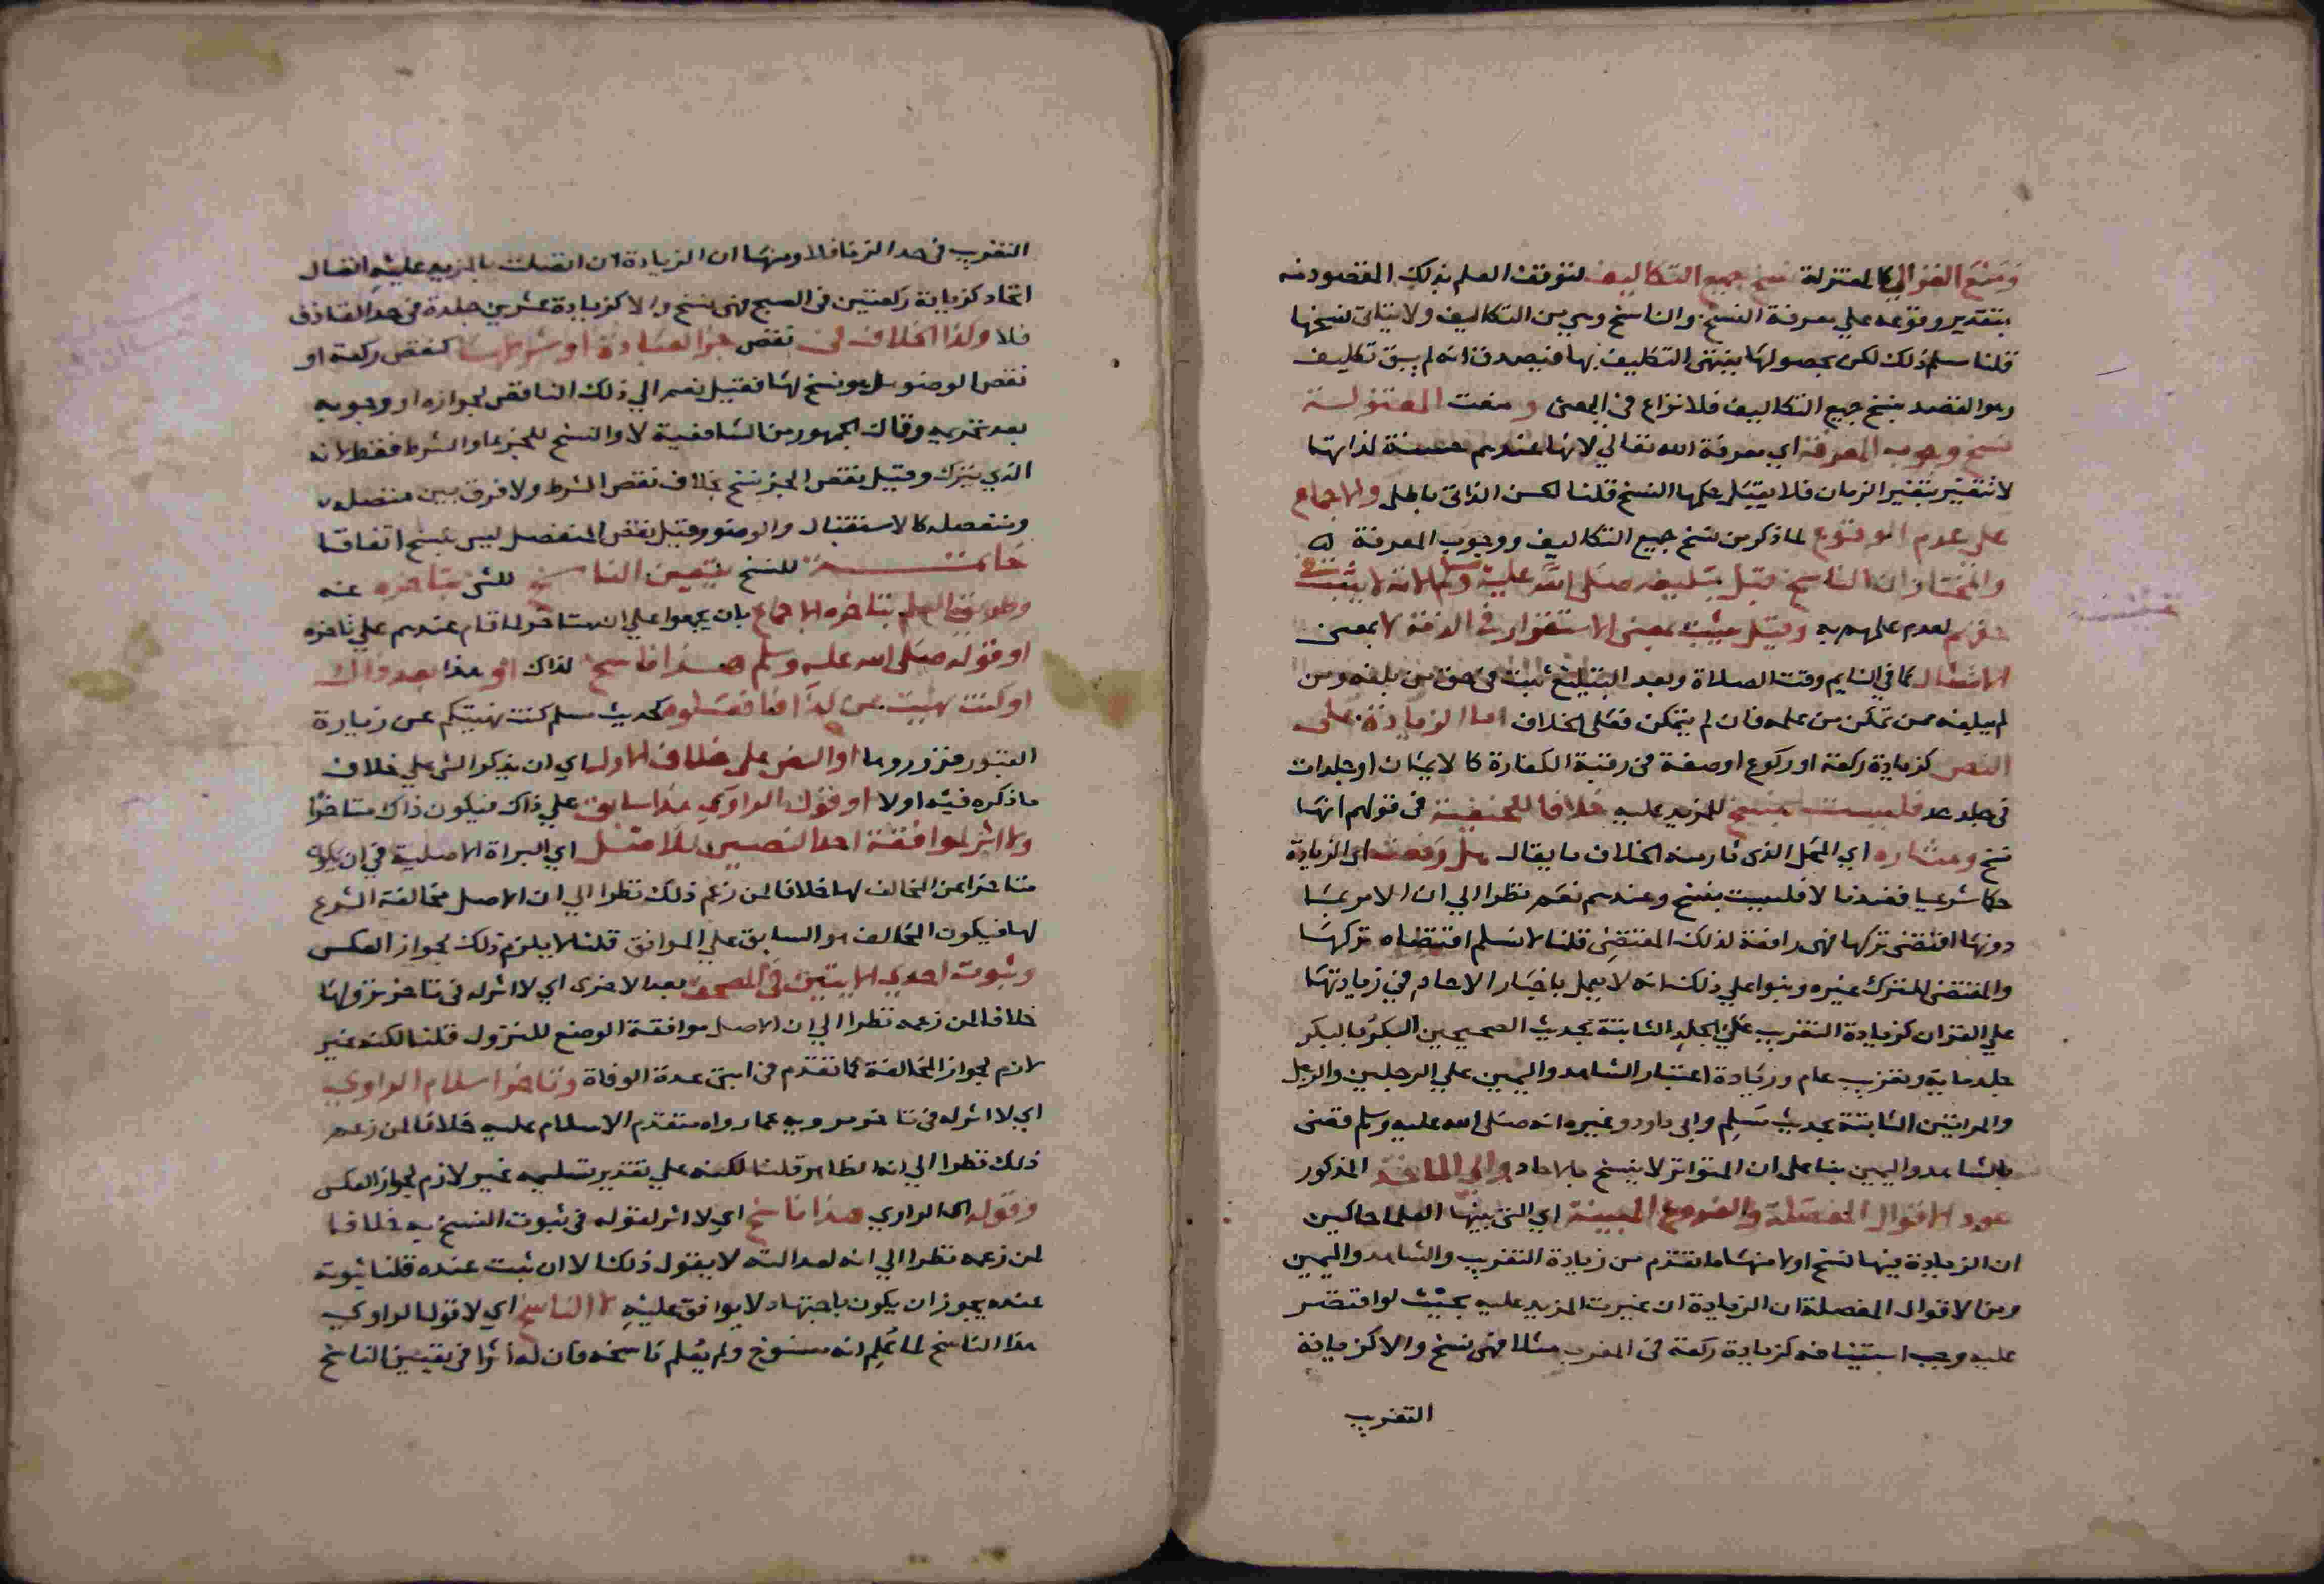 ومنع الغزالي كالمعتزلة نسخ جميع التكاليف لتوقف العلم بذلك المقصود منه
بتقدير وقوعه علي معرفة النسخ والناسخ وهي من التكاليف ولا يتاتى نسخها
قلنا مسلم ذلك لكن بحصولها ينتهي التكليف بها فيصدق انه لم يبق تكليف
وهو القصد بنسخ جميع التكاليف فلا نزاع في المعنى ومنعت المعتزلة
نسخ وجوب المعرفة اي معرفة الله تعالي لانها عندهم حسنة لذاتها
لا تتغير بتغير الزمان فلا يقبل حكمها النسخ قلنا الحسن الذاتي باطل والاجماع
علي عدم الوقوع لما ذكر من نسخ جميع التكاليف ووجوب المعرفة
والمختار ان الناسخ قبل تبليغه صلى الله عليه وسلم الامة لا يثبت في
حقهم لعدم علمهم به وقيل يثبت بمعنى الاستقرار في الذمة لا بمعنى
الامتثال كما في النايم وقت الصلاة وبعد التبليغ يثبت في حق من بلغه ومن
لم يبلغه ممن تمكن من علمه فان لم يتمكن فعلى الخلاف اما الزيادة على
النص كزيادة ركعة او ركوع او صفة في رقبة الكفارة كالايمان او جلدات
في جلد حد فليست بنسخ للمزيد عليه خلافا للحنفية في قولهم انها
نسخ ومثاره اي المحل الذي ثار منه الخلاف ما يقال هل رفعت اي الزيادة
حكما شرعيا فعندنا لا فليست بنسخ وعندهم نعم نظرا الي ان الامر بما
دونها اقتضى تركها فهي رافعة لذلك المقتضى قلنا لا نسلم اقتضاه تركها
والمقتضي للترك غيره وبنوا علي ذلك انه لا يعمل باخبار الاحاد في زيادتها
علي القران كزيادة التغريب علي الجلد الثابتة بحديث الصحيحين البكر بالبكر
جلد ماية وتغريب عام وزيادة اعتبار الشاهد واليمين علي الرجلين والرجل
والمراتين الثابتة بحديث مسلم وابي داود وغيره انه صلى الله عليه وسلم قضى
بالشاهد واليمين بنا على ان المتواتر لا ينسخ بالاحاد والي الماخذ المذكور
عود الاقوال المفصلة والفروع المبينة اي التي بينها العلما حاكين
ان الزيادة فيها نسخ او لا منها ما تقدم من زيادة التغريب والشاهد واليمين
ومن الاقوال المفصلة ان الزيادة ان غيرت المزيد عليه بحيث لو اقتصر
عليه وجب استينافه كزيادة ركعة في المغرب مثلا فهي نسخ والا كزيادة
التغريب
التغريب في حد الزنا فلا ومنها ان الزيادة ان اتصلت بالمزيد عليه اتصال
اتحاد كزيادة ركعتين في الصبح فهي نسخ والا كزيادة عشرين جلدة في حد القاذف
فلا وكذا الخلاف في نقص جزا العبادة او شرطها كنقص ركعة او
نقص الوضو هل هو نسخ لها فقيل نعم الي ذلك الناقص لجوازه او وجوبه
بعد تحريمه وقال الجمهور من الشافعية لا والنسخ للجز او الشرط فقط لانه
الذي يترك وقيل نقص الجز نسخ بخلاف نقص الشرط ولا فرق بين متصله
ومنفصله كالاستقبال والوضو وقيل نقص المنفصل ليس بنسخ اتفاقا
خاتمة للنسخ يتعين الناسخ للشي بتاخره عنه
وطريق العلم بتاخره الاجماع بان يجمعوا علي انه متاخر لما قام عندهم علي تاخره
او قوله صلى الله عليه وسلم هذا ناسخ لذاك او هذا بعد ذاك
او كنت نهيت عن كذا فافعلوه كحديث مسلم كنت نهيتكم عن زيارة
القبور فزوروها او النص على خلاف الاول اي ان يذكر الشي علي خلاف
ما ذكره فيه اولا او قول الراوي هذا سابق علي ذاك فيكون ذاك متاخرا
ولا اثر لموافقة احد النصين للاصل اي البراة الاصلية في ان يكون
متاخرا عن المخالف لها خلافا لمن زعم ذلك نظرا الي ان الاصل مخالفة الشرع
لها فيكون المخالف هو السابق علي الموافق قلنا لا يلزم ذلك لجواز العكس
وثبوت احدي الايتين في المصحف بعد الاخرى اي لا اثر له في تاخر نزولها
خلافا لمن زعمه نظرا الي ان الاصل موافقة الوضع للنزول قلنا لكنه غير
لازم لجواز المخالفة كما تقدم في ايتي عدة الوفاة وتاخر اسلام الراوي
اي لا اثر له في تاخر مرويه عما رواه متقدم الاسلام عليه خلافا لمن زعم
ذلك نظرا الي انه الظاهر قلنا لكنه علي تقدير تسليمه غير لازم لجواز العكس
وقوله اي الراوي هذا ناسخ اي لا اثر لقوله في ثبوت النسخ به خلافا
لمن زعمه نظرا الي انه لعدالته لا يقول ذلك الا ان ثبت عنده قلنا ثبوته
عنده يجوز ان يكون باجتهاد لا يوافق عليه لا الناسخ اي لا قول الراوي
هذا الناسخ لما علم انه منسوخ ولم يعلم ناسخه فان له اثرا في تعيين الناسخ